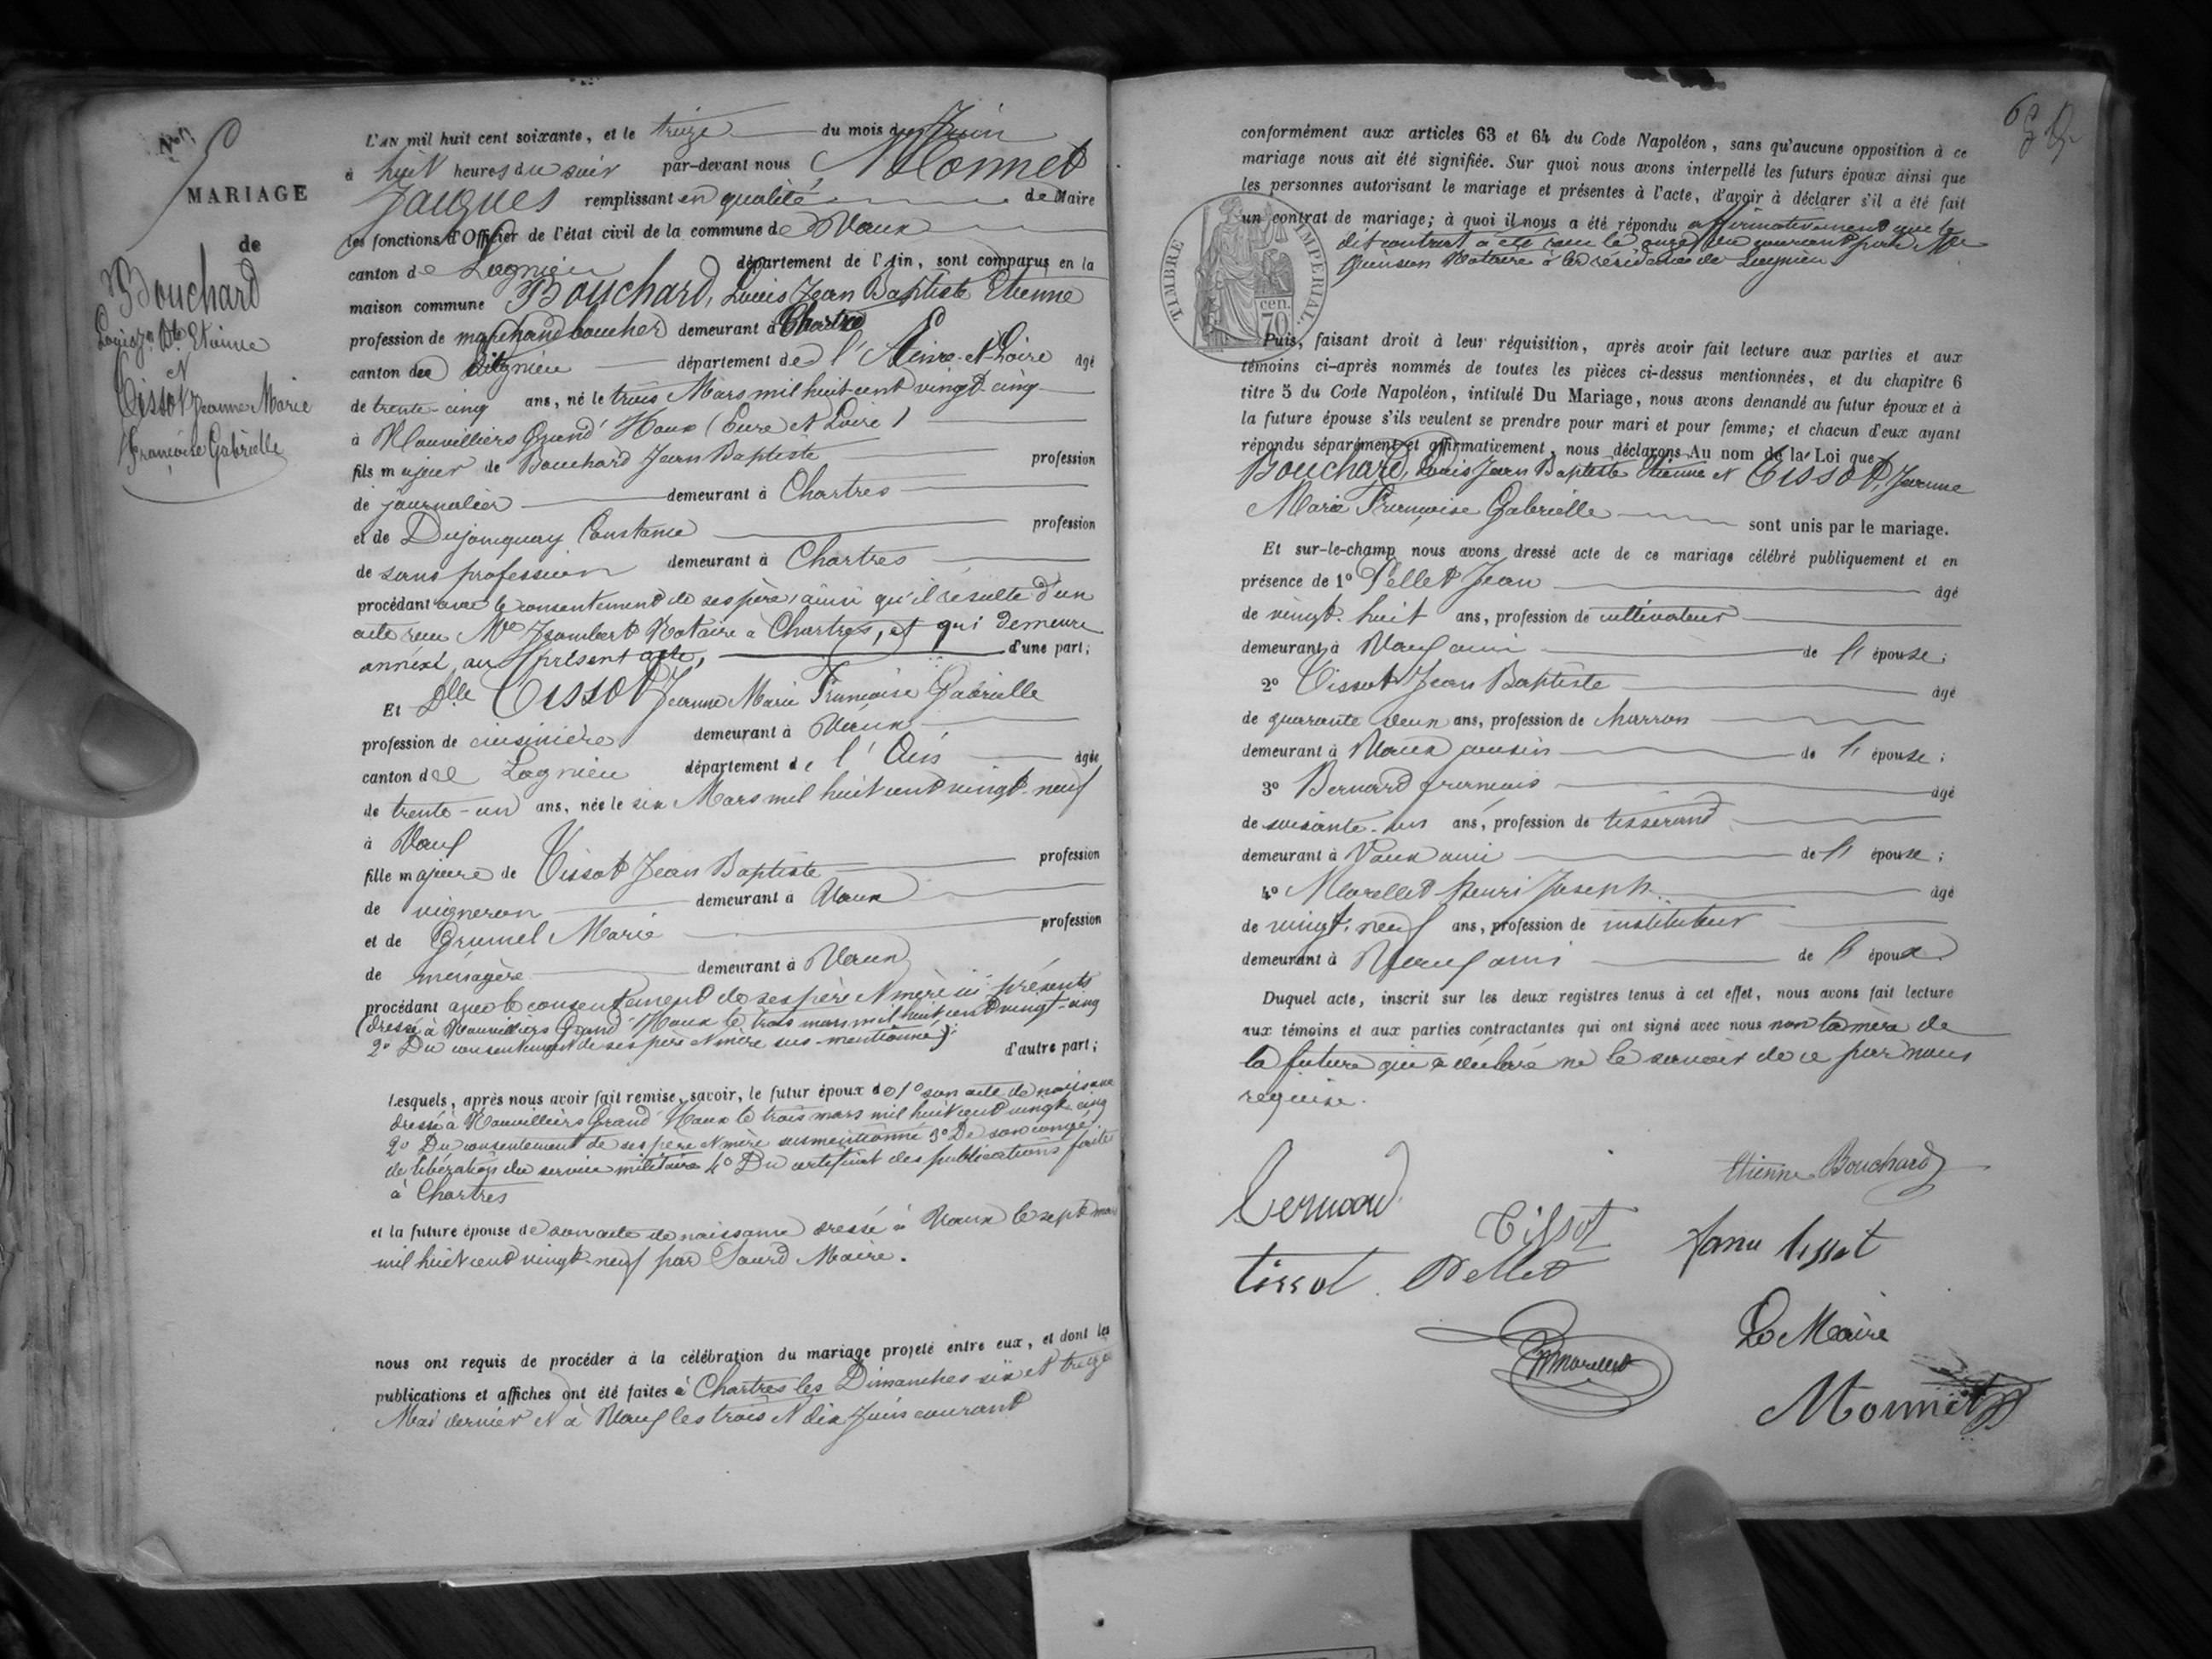 MARIAGE
de
Bouchard
Louis Jn Bte Etienne
et
Tissot Jeanne Marie
Françoise Gabrielle
L'AN mil huit cent soixante, et le treize du mois de Juin
à huit heures du soir par-devant nous Monnet
Jacques remplissant en qualité de Maire
les fonctions d'Officier de l'état civil de la commune de Vaux
canton de Lagnieu département de l'Ain, sont comparus en la
maison commune Bouchard, Louis Jean Baptiste Etienne
profession de marchand boucher demeurant à Chartres
canton de département de l'Eure-et-Loire âgé
de trente-cinq ans, né le trois Mars mil huit cent vingt-cinq
à Houx (Eure et Loire)
fils majeur de Bouchard Jean Baptiste profession
de journalier demeurant à Chartres
et de Dujonquay Constance profession
de sans profession demeurant à Chartres
procédant avec le consentement de ses père, ainsi qu'il résulte d'un
acte reçu Me Isambert Notaire à Chartres, et qui demeure
annexé au présent acte, d'une part;
Et Dlle Tissot Jeanne Marie Françoise Gabrielle
profession de cuisinière demeurant à Vaux
canton de Lagnieu département de l'Ain âgée
de trente-un ans, née le six Mars mil huit cent vingt-neuf
à Vaux
fille majeure de Tissot Jean Baptiste profession
de vigneron demeurant à Vaux
et de Grumel Marie profession
de ménagère demeurant à Vaux
procédant avec le consentement de ses père et mère ici présents
(dressé à Houx le trois mars mil huit cent vingt-cinq
2° Du consentement de ses père et mère sus-mentionné) d'autre part;
Lesquels, après nous avoir fait remise, savoir, le futur époux de 1° son acte de naissance
dressé à Houx le trois mars mil huit cent vingt cinq
2° Du consentement de ses père et mère susmentionné 3° De son congé
de libération du service militaire 4° Du certificat des publications faites
à Chartres
et la future épouse de son acte de naissance dressé à Vaux le sept mars
mil huit cent vingt-neuf par Sourd Maire.
nous ont requis de procéder à la célébration du mariage projeté entre eux, et dont les
publications et affiches ont été faites à Chartres les Dimanches six et treize
Mai dernier et à Vaux les trois et dix Juin courant
conformément aux articles 63 et 64 du Code Napoléon, sans qu'aucune opposition à ce
mariage nous ait été signifiée. Sur quoi nous avons interpellé les futurs époux ainsi que
les personnes autorisant le mariage et présentes à l'acte, d'avoir à déclarer s'il a été fait
un contrat de mariage; à quoi il nous a été répondu affirmativement que le
dit contrat a été reçu le onze du courant par Me
Quinson Notaire à la résidence de Lagnieu
TIMBRE IMPERIAL
70 cen.
Puis, faisant droit à leur réquisition, après avoir fait lecture aux parties et aux
témoins ci-après nommés de toutes les pièces ci-dessus mentionnées, et du chapitre 6
titre 5 du Code Napoléon, intitulé Du Mariage, nous avons demandé au futur époux et à
la future épouse s'ils veulent se prendre pour mari et pour femme; et chacun d'eux ayant
répondu séparément et affirmativement, nous déclarons Au nom de la Loi que
Bouchard, Louis Jean Baptiste Etienne et Tissot, Jeanne
Marie Françoise Gabrielle sont unis par le mariage.
Et sur-le-champ nous avons dressé acte de ce mariage célébré publiquement et en
présence de 1° Pellet Jean âgé
de vingt-huit ans, profession de cultivateur
demeurant à Vaux ami de l'épouse;
2° Tissot Jean Baptiste âgé
de quarante deux ans, profession de charron
demeurant à Vaux cousin de l'épouse;
3° Bernard françois âgé
de soixante-un ans, profession de tisserand
demeurant à Vaux ami de l'épouse;
4° Marellet Henri Joseph âgé
de vingt-neuf ans, profession de instituteur
demeurant à Vaux ami de l'époux
Duquel acte, inscrit sur les deux registres tenus à cet effet, nous avons fait lecture
aux témoins et aux parties contractantes qui ont signé avec nous non la mère de
la future qui a déclaré ne le savoir de ce par nous
requise.
Etienne Bouchard
Bernard
Tissot
Jane tissot
tissot
Pellet
Le Maire
Marellet
Monnet